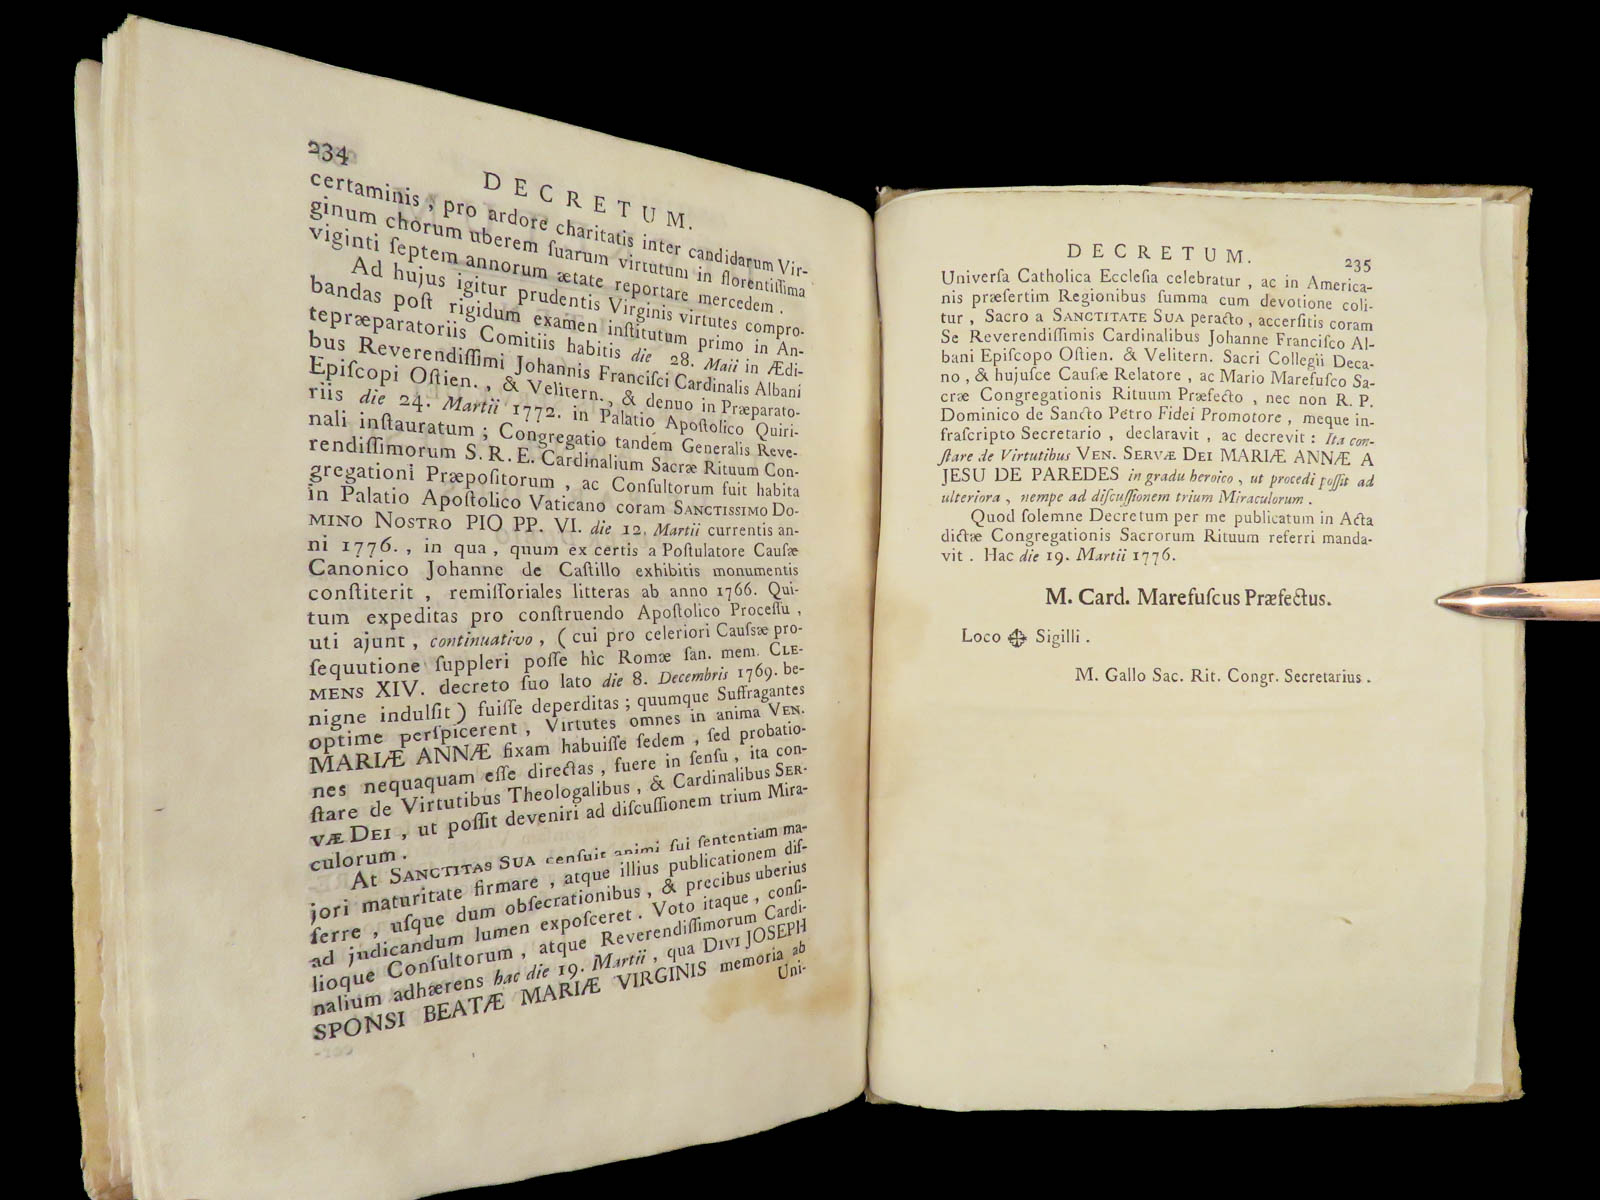 234
DECRETUM.
certaminis, pro ardore charitatis inter candidarum Vir-
ginum chorum uberem ſuarum virtutum in florentiſſima
viginti ſeptem annorum ætate reportare mercedem.
Ad hujus igitur prudentis Virginis virtutes compro-
bandas poſt rigidum examen inſtitutum primo in An-
tepræparatoriis Comitiis habitis die 28. Maii in Ædi-
bus Reverendiſſimi Johannis Franciſci Cardinalis Albani
Epiſcopi Oſtien., & Velitern., & denuo in Præparato-
riis die 24. Martii 1772. in Palatio Apoſtolico Quiri-
nali inſtauratum; Congregatio tandem Generalis Reve-
rendiſſimorum S. R. E. Cardinalium Sacræ Rituum Con-
gregationi Præpoſitorum, ac Conſultorum fuit habita
in Palatio Apoſtolico Vaticano coram SANCTISSIMO DO-
MINO NOSTRO PIO PP. VI. die 12. Martii currentis an-
ni 1776., in qua, quum ex certis a Poſtulatore Cauſæ
Canonico Johanne de Caſtillo exhibitis monumentis
conſtiterit, remiſſoriales litteras ab anno 1766. Qui-
tum expeditas pro conſtruendo Apoſtolico Proceſſu,
uti ajunt, continuativo, (cui pro celeriori Cauſsæ pro-
ſequutione ſuppleri poſſe hìc Romæ ſan. mem. CLE-
MENS XIV. decreto ſuo lato die 8. Decembris 1769. be-
nigne indulſit) fuiſſe deperditas; quumque Suffragantes
optime perſpicerent, Virtutes omnes in anima VEN.
MARIÆ ANNÆ fixam habuiſſe ſedem, ſed probatio-
nes nequaquam eſſe directas, fuere in ſenſu, ita con-
ſtare de Virtutibus Theologalibus, & Cardinalibus SER-
VÆ DEI, ut poſſit deveniri ad diſcuſſionem trium Mira-
culorum.
At SANCTITAS SUA cenſuit animi ſui ſententiam ma-
jori maturitate firmare, atque illius publicationem diſ-
ferre, uſque dum obſecrationibus, & precibus uberius
ad judicandum lumen expoſceret. Voto itaque, conſi-
lioque Conſultorum, atque Reverendiſſimorum Cardi-
nalium adhærens hac die 19. Martii, qua DIVI JOSEPH
SPONSI BEATÆ MARIÆ VIRGINIS memoria ab
Uni-
DECRETUM.
235
Univerſa Catholica Eccleſia celebratur, ac in America-
nis præſertim Regionibus ſumma cum devotione coli-
tur, Sacro a SANCTITATE SUA peracto, accerſitis coram
Se Reverendiſſimis Cardinalibus Johanne Franciſco Al-
bani Epiſcopo Oſtien. & Velitern. Sacri Collegii Deca-
no, & hujuſce Cauſæ Relatore, ac Mario Marefuſco Sa-
cræ Congregationis Rituum Præfecto, nec non R. P.
Dominico de Sancto Petro Fidei Promotore, meque in-
fraſcripto Secretario, declaravit, ac decrevit: Ita con-
ſtare de Virtutibus VEN. SERVÆ DEI MARIÆ ANNÆ A
JESU DE PAREDES in gradu heroico, ut procedi poſſit ad
ulteriora, nempe ad diſcuſſionem trium Miraculorum.
Quod ſolemne Decretum per me publicatum in Acta
dictæ Congregationis Sacrorum Rituum referri manda-
vit. Hac die 19. Martii 1776.
M. Card. Marefuſcus Præfectus.
Loco ✠ Sigilli.
M. Gallo Sac. Rit. Congr. Secretarius.